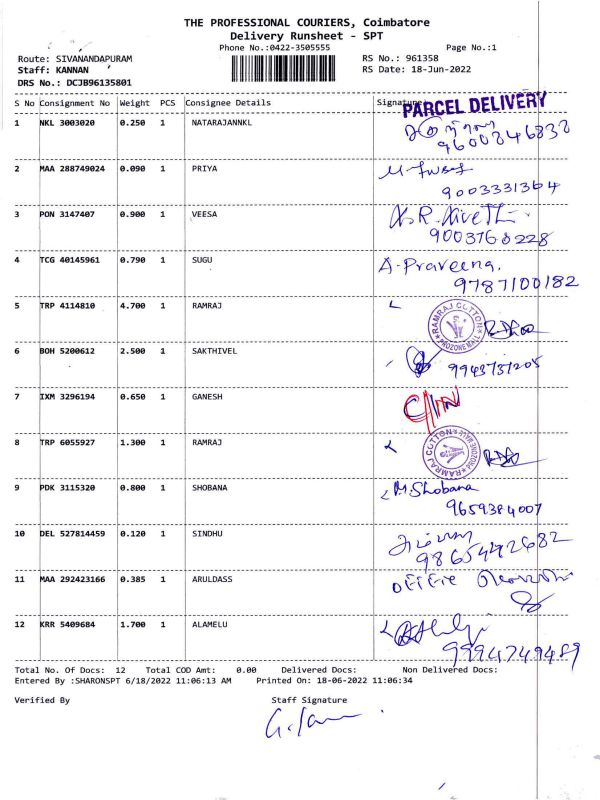 THE PROFESSIONAL COURIERS, Coimbatore
Delivery Runsheet - SPT
Phone No.:0422-3505555
Page No.:1
Route: SIVANANDAPURAM
RS No.: 961358
Staff: KANNAN
RS Date: 18-Jun-2022
DRS No.: DCJB96135801
S No Consignment No Weight PCS Consignee Details Signature
PARCEL DELIVERY
1 NKL 3003020 0.250 1 NATARAJANNKL
9600346832
2 MAA 288749024 0.090 1 PRIYA
9003331364
3 PON 3147407 0.900 1 VEESA
9003768228
4 TCG 40145961 0.790 1 SUGU A-Praveena.
9787100182
5 TRP 4114810 4.700 1 RAMRAJ
RAMRAJ COTTON
PROZONE MALL
6 BOH 5200612 2.500 1 SAKTHIVEL
9943731205
7 IXM 3296194 0.650 1 GANESH
8 TRP 6055927 1.300 1 RAMRAJ
RAMRAJ COTTON
PROZONE MALL
9 PDK 3115320 0.800 1 SHOBANA M.Shobana
9659384007
10 DEL 527814459 0.120 1 SINDHU
9865442682
11 MAA 292423166 0.385 1 ARULDASS
12 KRR 5409684 1.700 1 ALAMELU
9994749489
Total No. Of Docs: 12 Total COD Amt: 0.00 Delivered Docs: Non Delivered Docs:
Entered By :SHARONSPT 6/18/2022 11:06:13 AM Printed On: 18-06-2022 11:06:34
Verified By Staff Signature